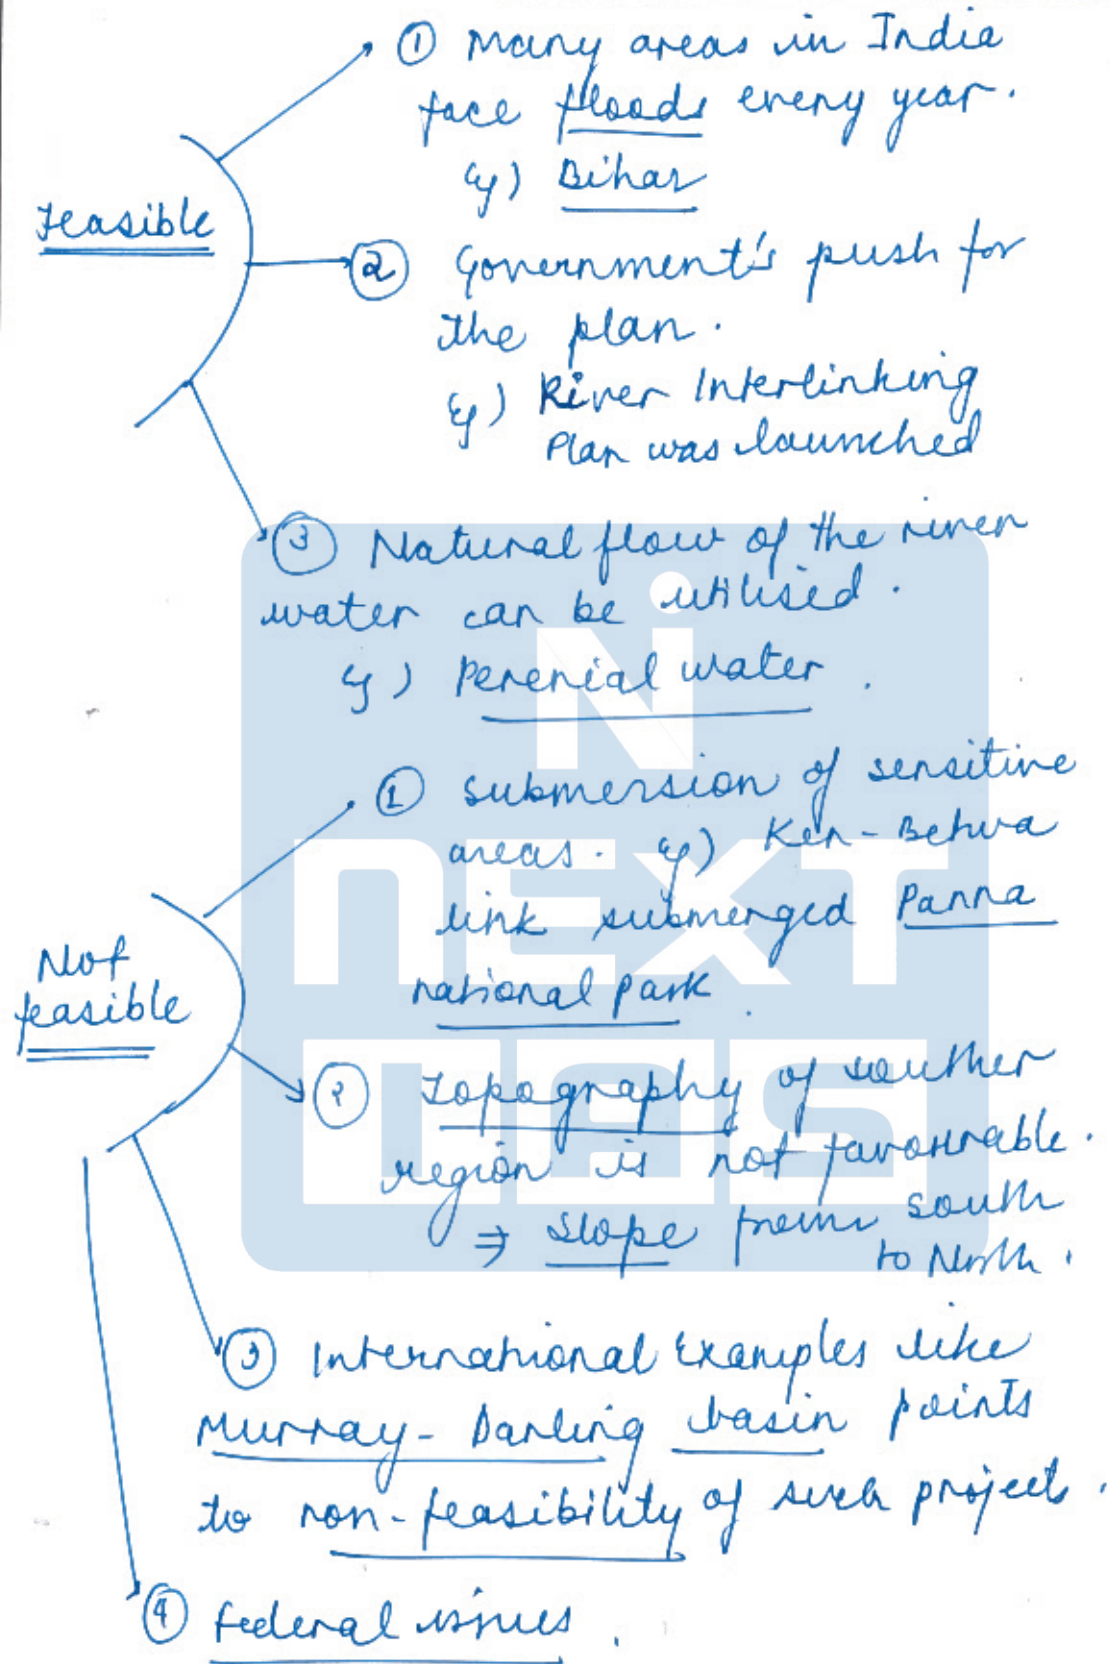 ① Many areas in India
face floods every year.
eg) Bihar
Feasible
② Government's push for
the plan.
eg) River Interlinking
Plan was launched
③ Natural flow of the river
water can be utilised.
eg) Perenial water.
① Submersion of sensitive
areas. eg) Ken-Betwa
link submerged Panna
national park.
Not
feasible
② Topography of souther
region is not favourable.
⇒ Slope from south
to North.
③ International Examples like
Murray-Darling basin points
to non-feasibility of such projects.
④ Federal issues.
NEXT
IAS